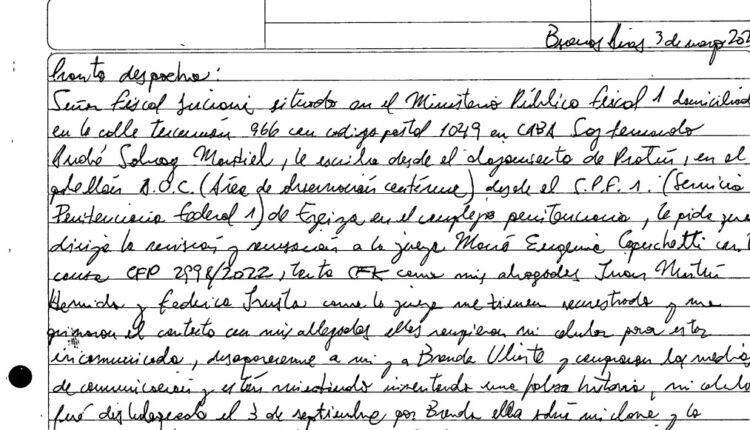 Buenos Aires 3 de marzo 202
Pronto despacho:
Señor Fiscal situado en el Ministerio Público Fiscal 1 domiciliado
en la calle 966 con codigo postal 1049 en CABA Soy Fernando
André Sabag Montiel, le escribo desde el alojamiento de en el
pabellón A.O.C. (Área de observación continua) desde el S.P.F. 1. (Servicio
Penitenciario Federal 1) de Ezeiza en el complejo penitenciario, le pido que
dirija la revisión y recusación a la jueza María Eugenia Capuchetti con
causa CFP 2998/2022, tanto CFK como mis abogados Juan Martín
Hermida y Federico como la jueza me tienen secuestrado y me
el contacto con mis allegados ellos rompieron mi celular para estar
incomunicado, desaparecerme a mi y a Brenda Uliarte y compraron los medios
de comunicacion y estan mintiendo inventando una falsa historia, mi celula
fué el 3 de septiembre por Brenda ella miclone y lo